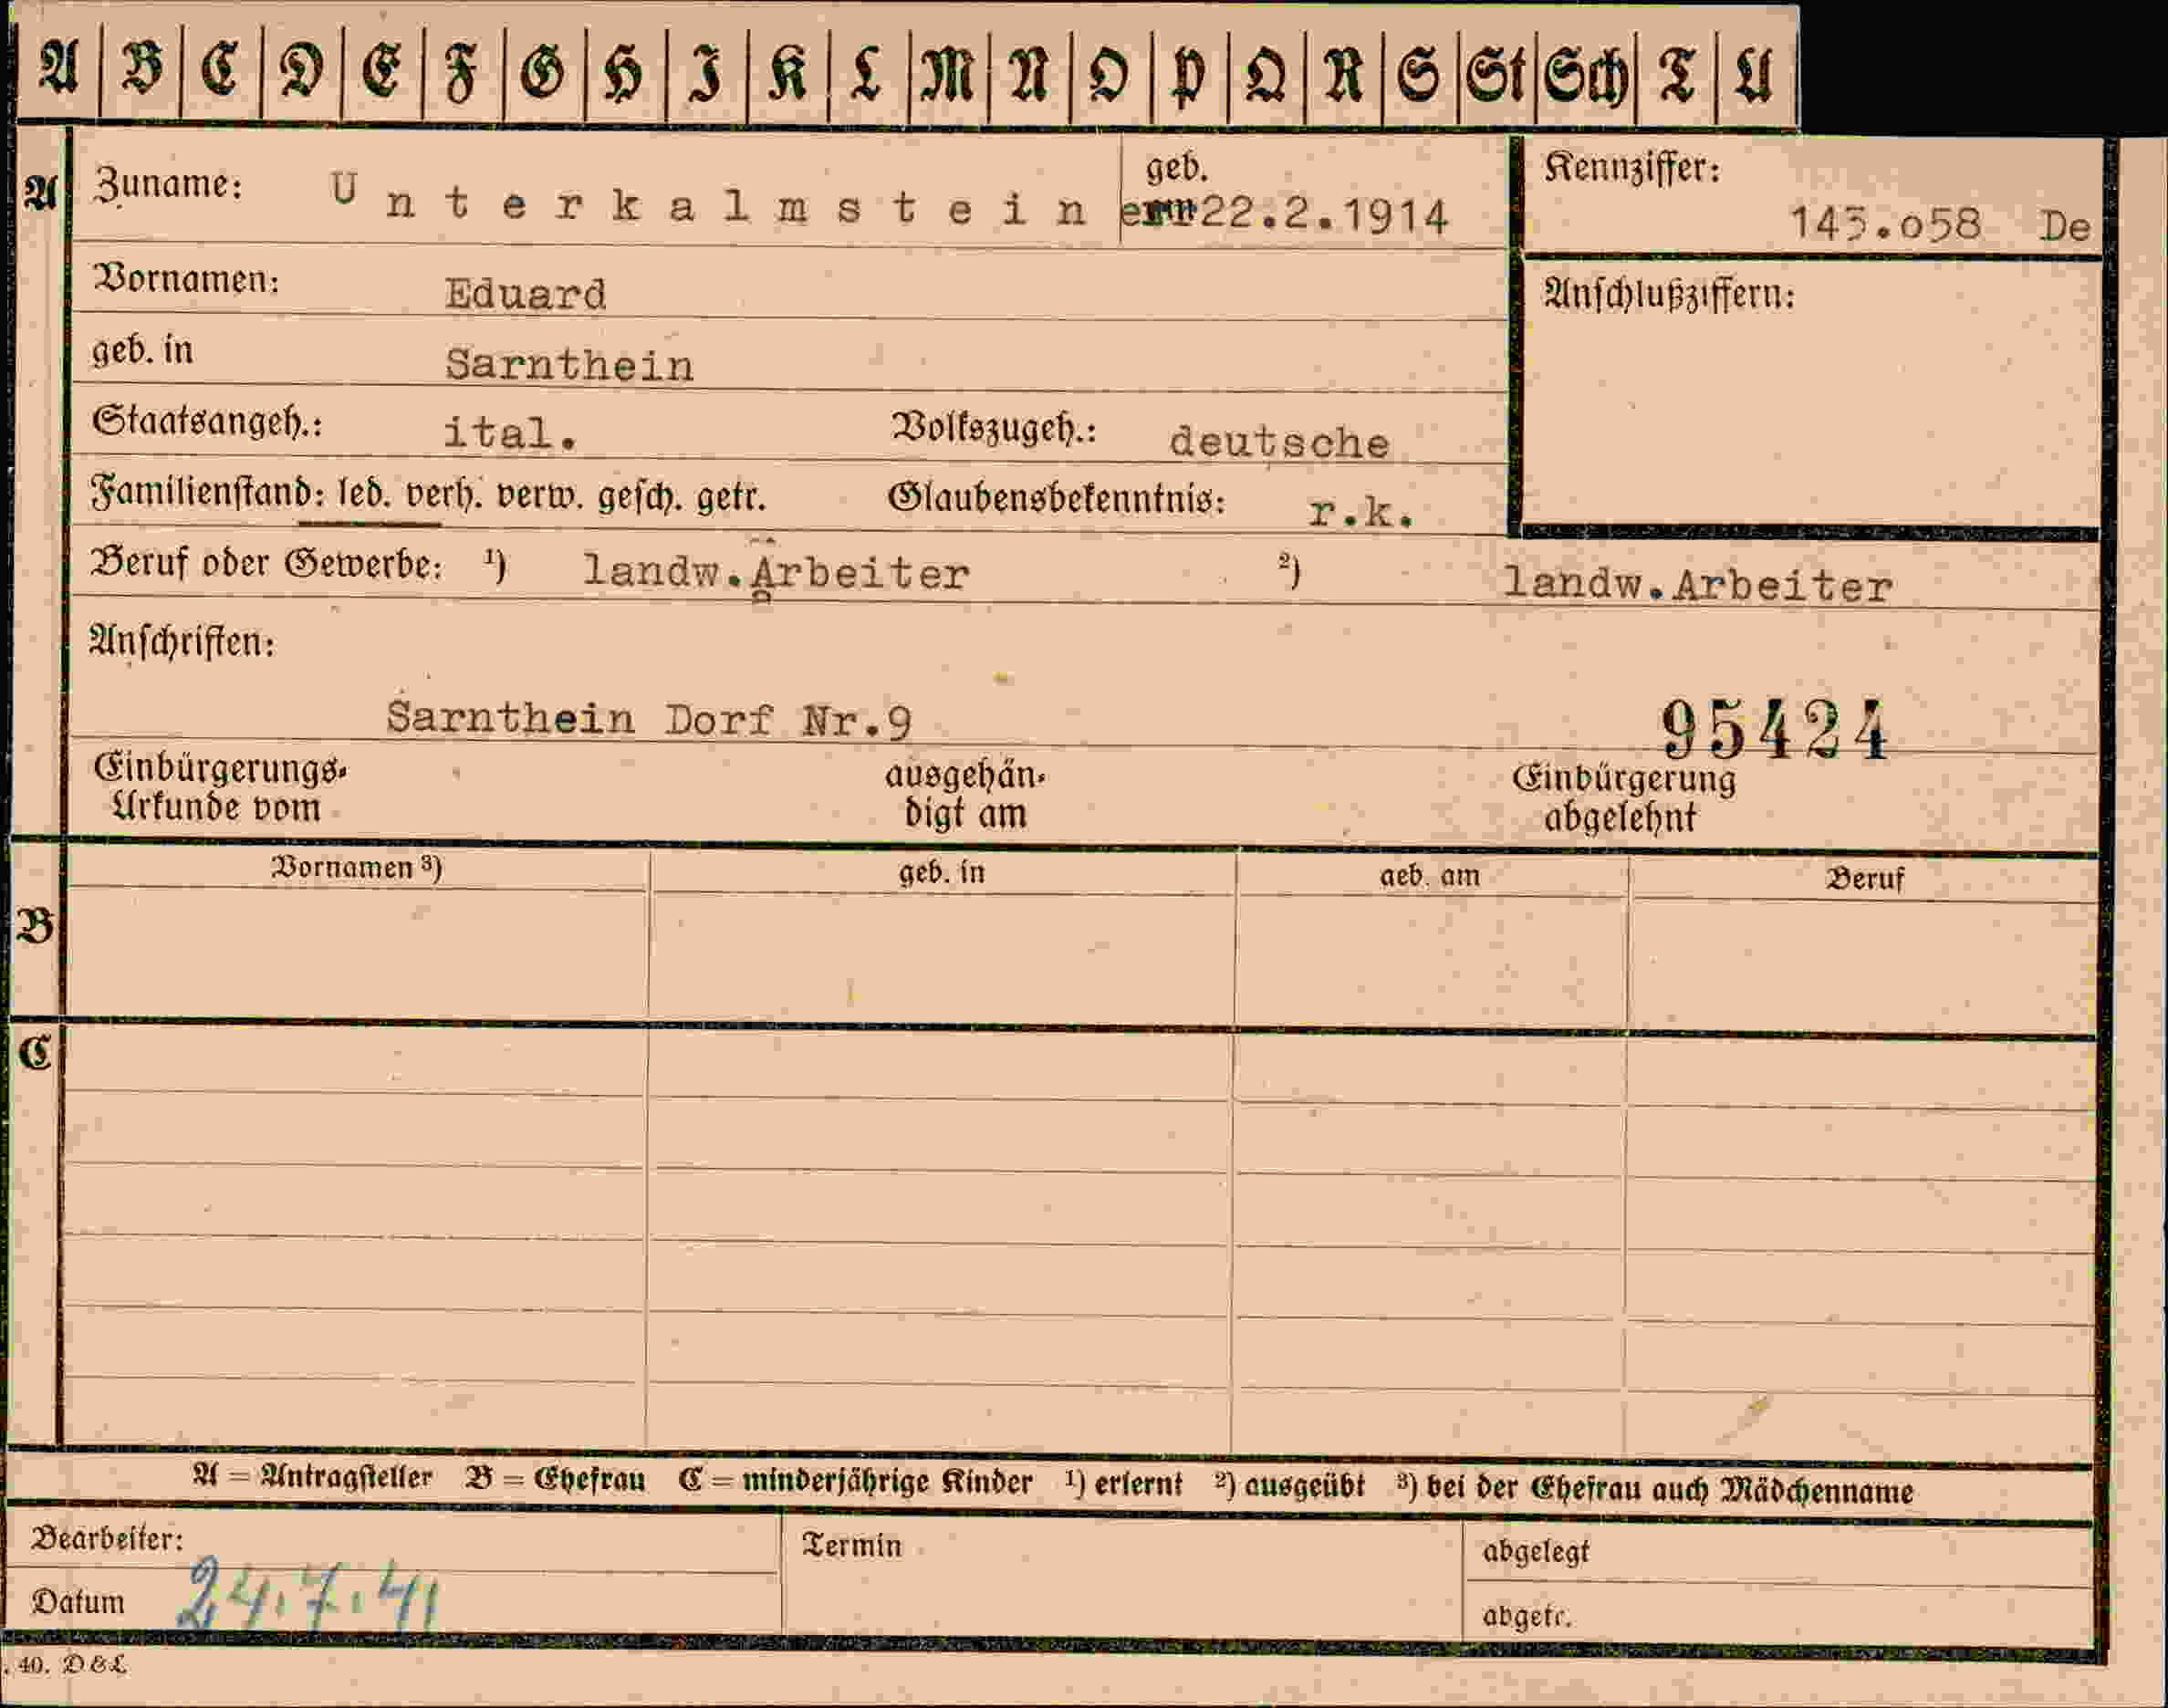 A B C D E F G H I K L M N O P Q R S St Sch T U
A Zuname: Unterkalmsteiner geb. 22.2.1914 Kennziffer: 145.o58 De
Vornamen: Eduard Anschlußziffern:
geb. in Sarnthein
Staatsangeh.: ital. Volkszugeh.: deutsche
Familienstand: led. verh. verw. gesch. getr. Glaubensbekenntnis: r.k.
Beruf oder Gewerbe: ¹) landw.Arbeiter ²) landw.Arbeiter
Anschriften:
Sarnthein Dorf Nr.9 95424
Einbürgerungs- ausgehän- Einbürgerung
Urkunde vom digt am abgelehnt
Vornamen ³) geb. in geb. am Beruf
B
C
A = Antragsteller B = Ehefrau C = minderjährige Kinder ¹) erlernt ²) ausgeübt ³) bei der Ehefrau auch Mädchenname
Bearbeiter: Termin abgelegt
Datum 24.7.41 abgetr.
. 40. D&L